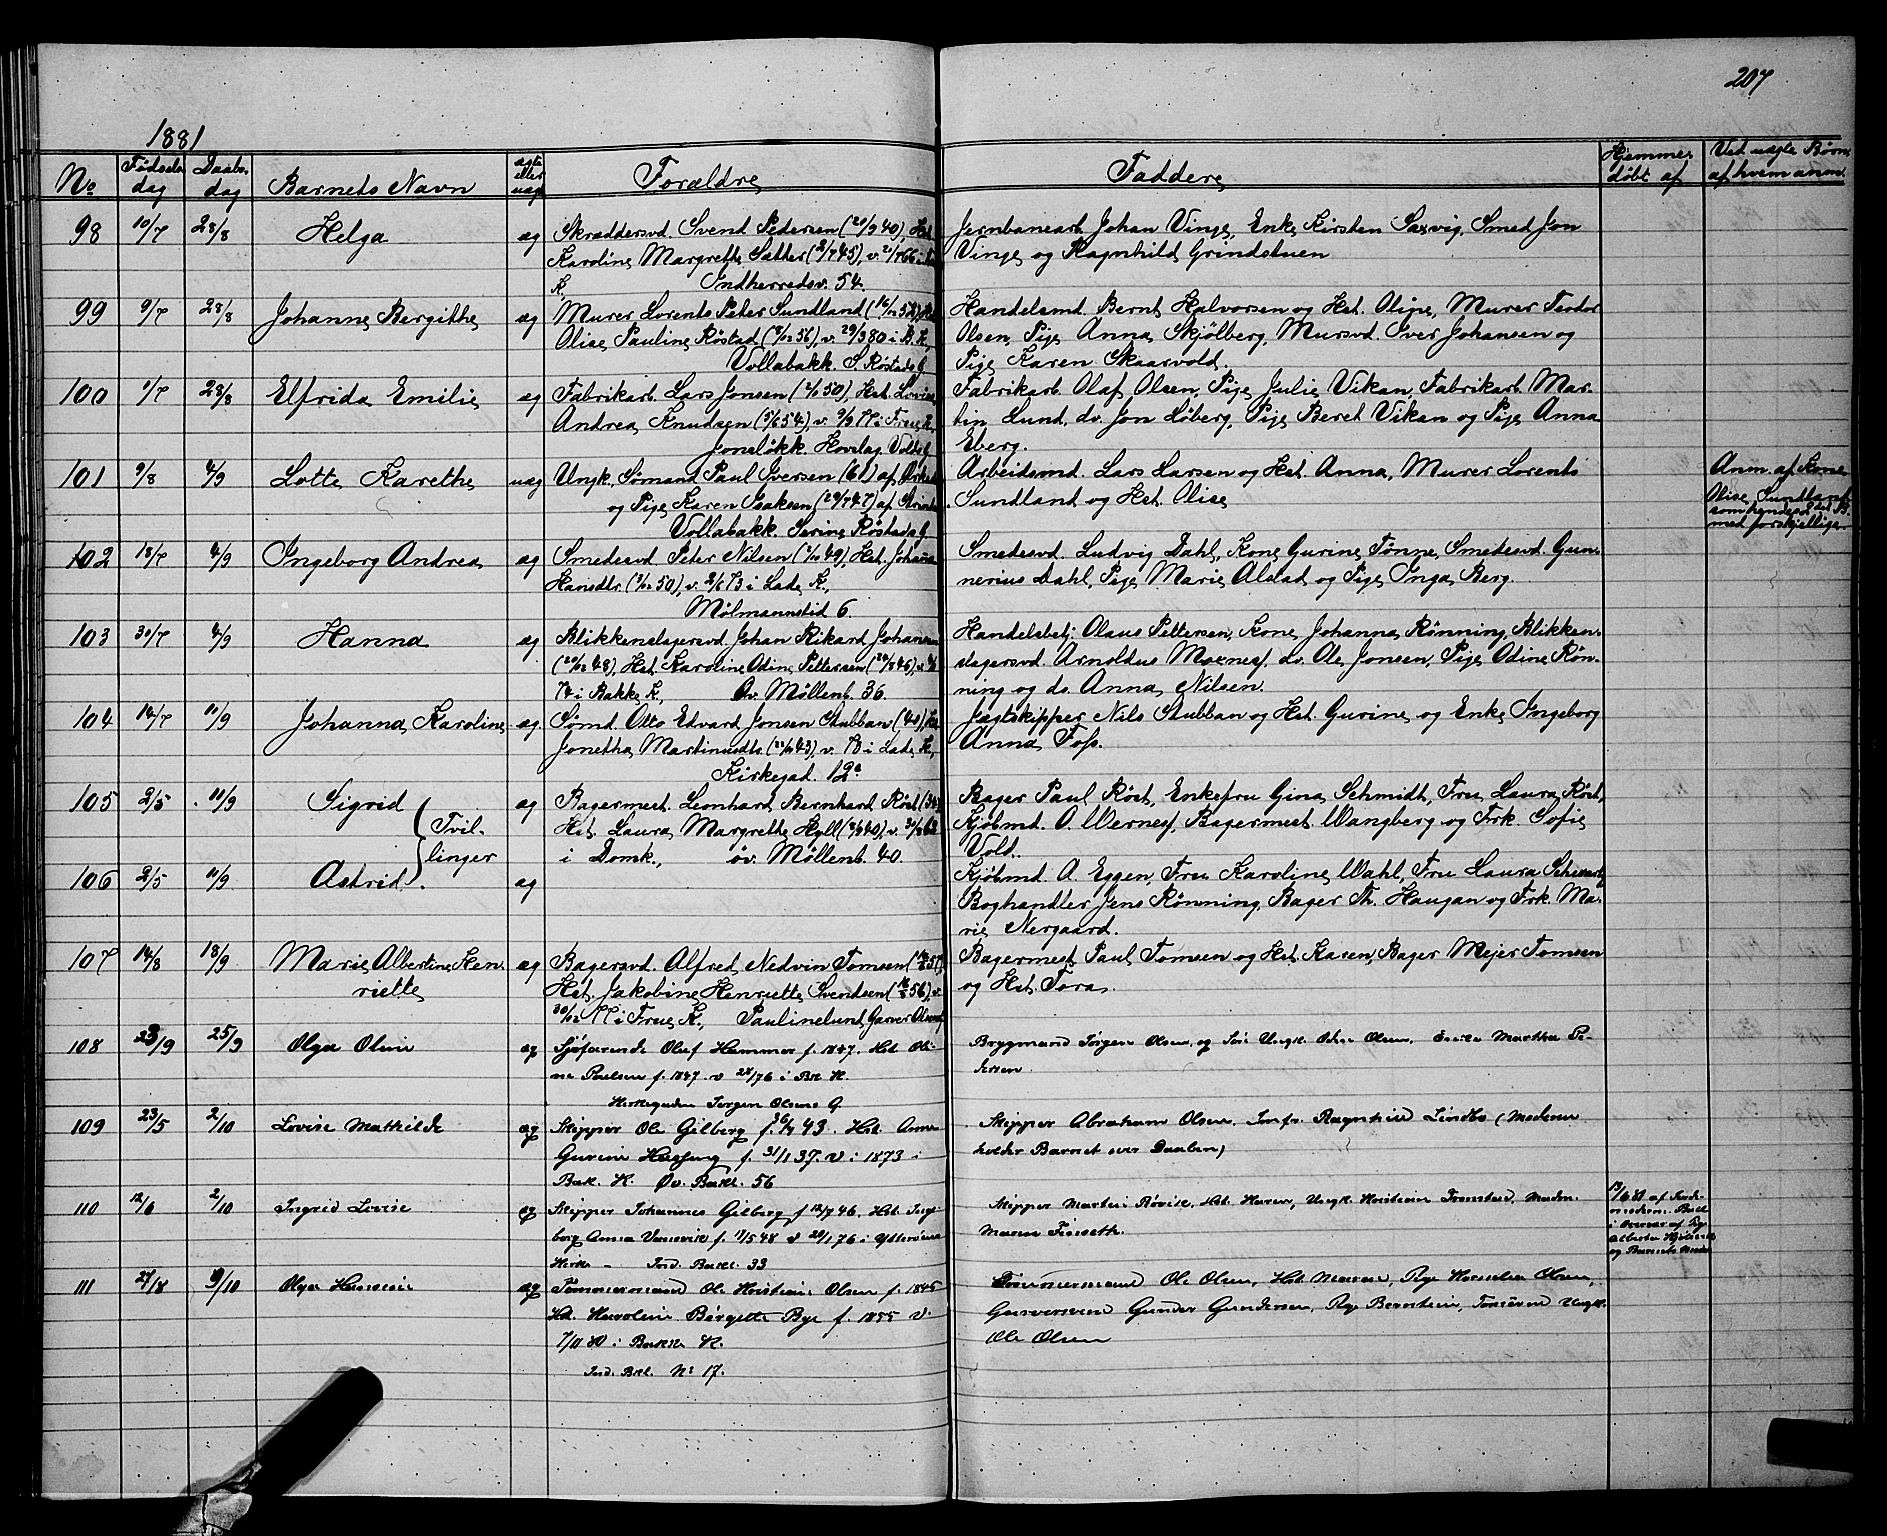 207
1881
No
Fødsels dag
Daabs dag
Barnets Navn
ægte eller uæg
Forældre
Faddere
Hjemme døbt af
Ved uægte Børn af hvem anm.
98 10/7 28/8 Helga æg
Skræddersvd. Svend Pedersen (20/9 40), Hst.
Karoline Margrethe Sæther
K. Indherredsv. 54.
Jernbanearb. Johan Vinge, Enke Kirsten Saxvig, Smed Jon
Vinge og Ragnhild Grindstuen
99 9/7 28/8 Johanne Bergithe æg
Murer Lorents Peter Sundland
Olise Pauline Røstad (8/12 56), v. 29/9 80 i B. K.,
Vollabakk. S. Røstads G
Handelsmd. Bernt Halvorsen og Hst. Oline, Murer Teodor
Olsen, Pige Anna Skjølberg, Mursvd. Iver Johansen og
Pige Karen Skaarvold.
100 1/7 28/8 Elfrida Emilie æg
Fabrikarb. Lars Jonsen Hst. Lovise
Andrea Knudsen (5/6 54), v. 9/9 77 i Frue K.,
Joneløkk. Hovdag Volds G
Fabrikarb. Olaf Olsen, Pige Julie Vikan, Fabrikarb. Mar-
tin Lund, do. Jon Løberg, Pige Beret Vikan og Pige Anna
Eberg.
101 9/8 4/9 Lotte Karethe uæg
Ungk. Sømand Paul Iversen (61) af
og Pige Karen Isaksen (29/7 47) af
Vollabakk. Serine Røstads G
Arbeidsmd. Lars Larsen og Hst. Anna, Murer Lorents
Sundland og Hst. Olise
Anm. af Kone
Olise Sundland
med forskjellige.
102 18/7 4/9 Ingeborg Andrea æg
Smedesvd. Peter Nilsen Hst. Johanna
Hansdtr. v. 2/6 73 i Lade K.,
Mølmannstid 6.
Smedesvd. Ludvig Dahl, Kone Gurine Tønne, Smedesvd. Gun-
nerius Dahl, Pige Marie Alstad og Pige Inga Berg.
103 30/7 4/9 Hanna æg
Blikkenslagersvd. Johan Rikard Johansen
Hst. Karoline Odine Pettersen
74 i Bakke K., Øv. Møllenb. 36.
Handelsbetj. Olaus Pettersen, Kone Johanna Rønning, Blikken-
slagersvd. Arnoldus Moxness, do. Ole Jonsen, Pige Odine Røn-
ning og do. Anna Nilsen.
104 14/7 11/9 Johanna Karoline æg
Sømd. Otto Edvard Jonsen Stubban (40),
Jonetha Martinusdtr. v. 73 i Lade K.,
Kirkegad. 12a
Jægtskipper Nils Stubban og Hst. Gurine og Enke Ingeborg
Anna Foss.
105 2/5 11/9 Sigrid æg
Tvil-
linger
Bagermest. Leonhard Bernhard Røst (34)
Hst. Laura Margrethe Hyll v.
i Domk., øv. Møllenb. 40.
Bager Paul Røst, Enkefru Gina Schmidt, Fru Laura Røst,
Kjøbmd. O. Werness, Bagermest. Wangberg og Frk. Sofie
Vold.
106 2/5 11/9 Astrid. æg
Kjøbmd. A. Eggen, Fru Karoline Wahl, Fru Laura
Boghandler Jens Rønning, Bager Th. Haugan og Frk. Ma-
rie Nergaard.
107 14/8 18/9 Marie Albertine Hen-
riette æg
Bagersvd. Alfred Nedvin Tomsen
Hst. Jakobine Henriette Svendsen v.
30/12 77 i Frue K., Paulinelund, Garver
Bagermest. Paul Tomsen og Hst. Karen, Bager Mejer Tomsen
og Hst. Tora.
108 23/9 25/9 Olga Oline æg
Sjøfarende Oluf Hammer f. 1847. Hst. Oli-
ne Paulsen f. 1847. v i Bk. K.
Kirkegaden Jørgen Olsens G.
Brygmand Jørgen Olsen, og Ungk. Olsen, Enke Martha Pe-
dersen
109 23/5 2/10 Lovise Mathilde æg
Skipper Ole Gilberg f. 43. Hst. Anne
Gurine f. 31/1 37. v i 1873 i
Bak. K. Øv. Bakl. 56
Skipper Abraham Olsen, Jomfr. Ragnhild Lindbo (Moderen
holder Barnet over Daaben)
110 12/6 2/10 Ingrid Lovise æg
Skipper Johannes Gilberg f 12/7 46. Hst. Inge-
borg Anna f. 11/5 48 v i Ytterøens
Kirke - Ind. Bakl. 33
Skipper Martin Røvik, Hst. Karen, Ungk. Kristian
Maren
111 27/8 9/10 Olga æg
Tømmermand Ole Kristian Olsen f. 1845
Hst. Karoline Birgitte Bye f. 1855 v.
7/11 80 i Bakke K.
Ind. Bkl. No 17.
Tømmermand Ole Olsen, Hst. Maren, Pige Olsen,
Garversvend Gunder Gundersen, Pige Ungk.
Ole Olsen